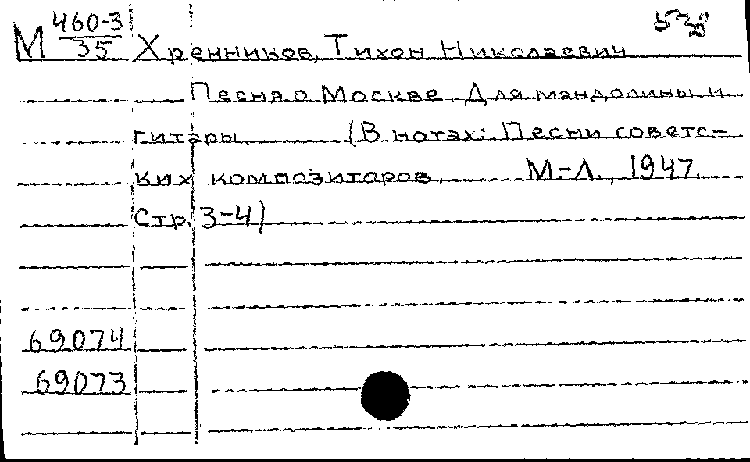 М 460-3/35 Хренников, Тихон Николаевич
Песня о Москве. Для мандолины и
гитары (В нотах: Песни советс-
ких композиторов. М.-Л., 1947.
Стр. 3-4)
69074
69073